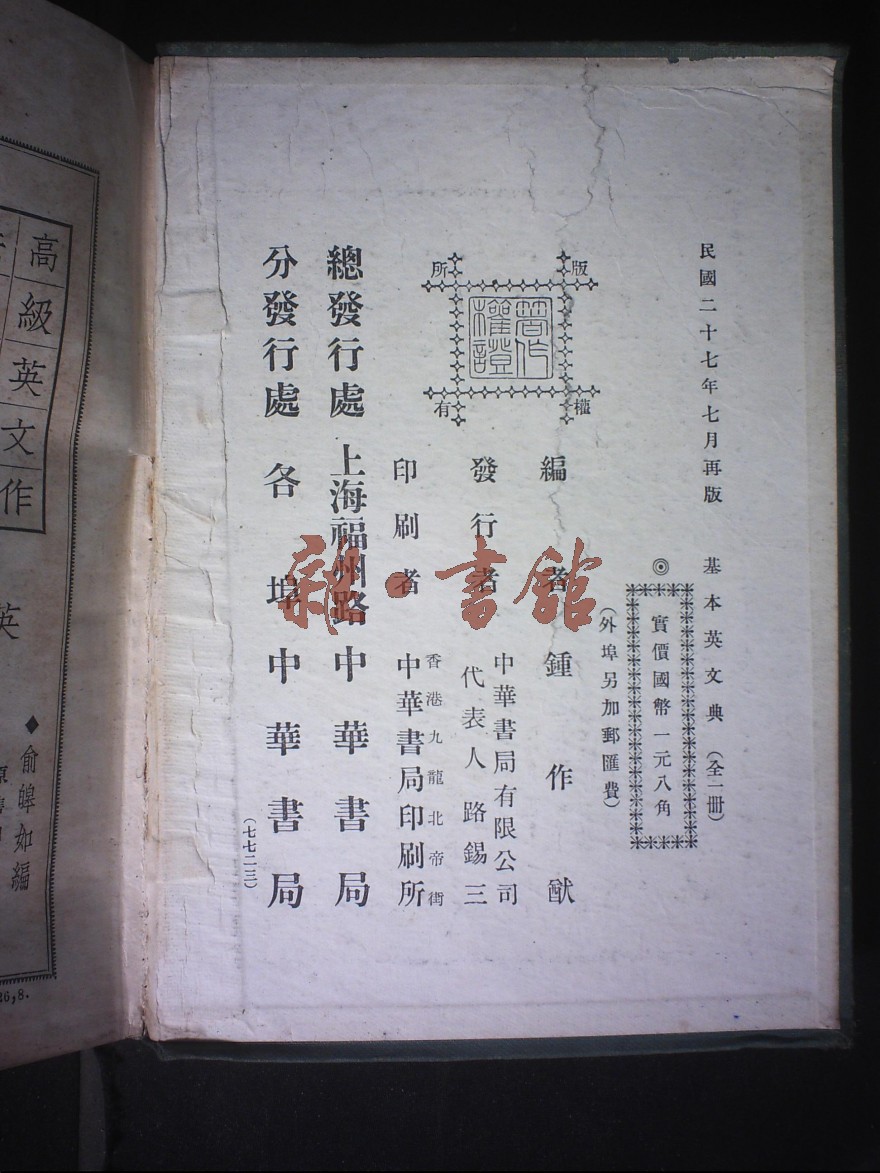 民國二十七年七月再版
基本英文典（全一冊）
◎實價國幣一元八角
（外埠另加郵匯費）
版權所有
著作權證
編者 鍾作猷
發行者 中華書局有限公司
代表人路錫三
印刷者 香港九龍北帝街
中華書局印刷所
總發行處 上海福州路 中華書局
分發行處 各埠中華書局
（七七二三）
雜·書館
高級英文作
英
◆俞皞如編
26,8.